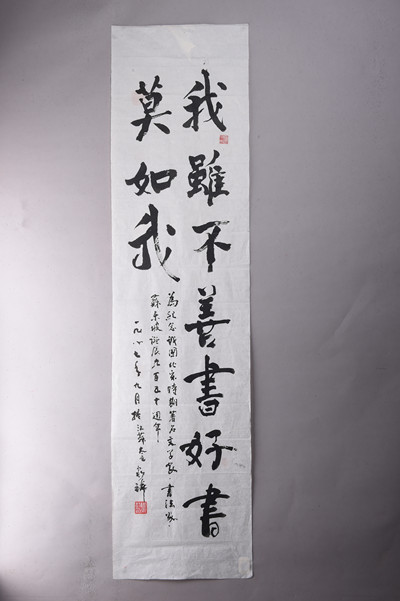 我雖不善書好書
莫如我
為紀念我國北宋時期著名文學家·書法家·
蘇東坡誕辰九百五十週年！
一九八七年九月於江蘇太